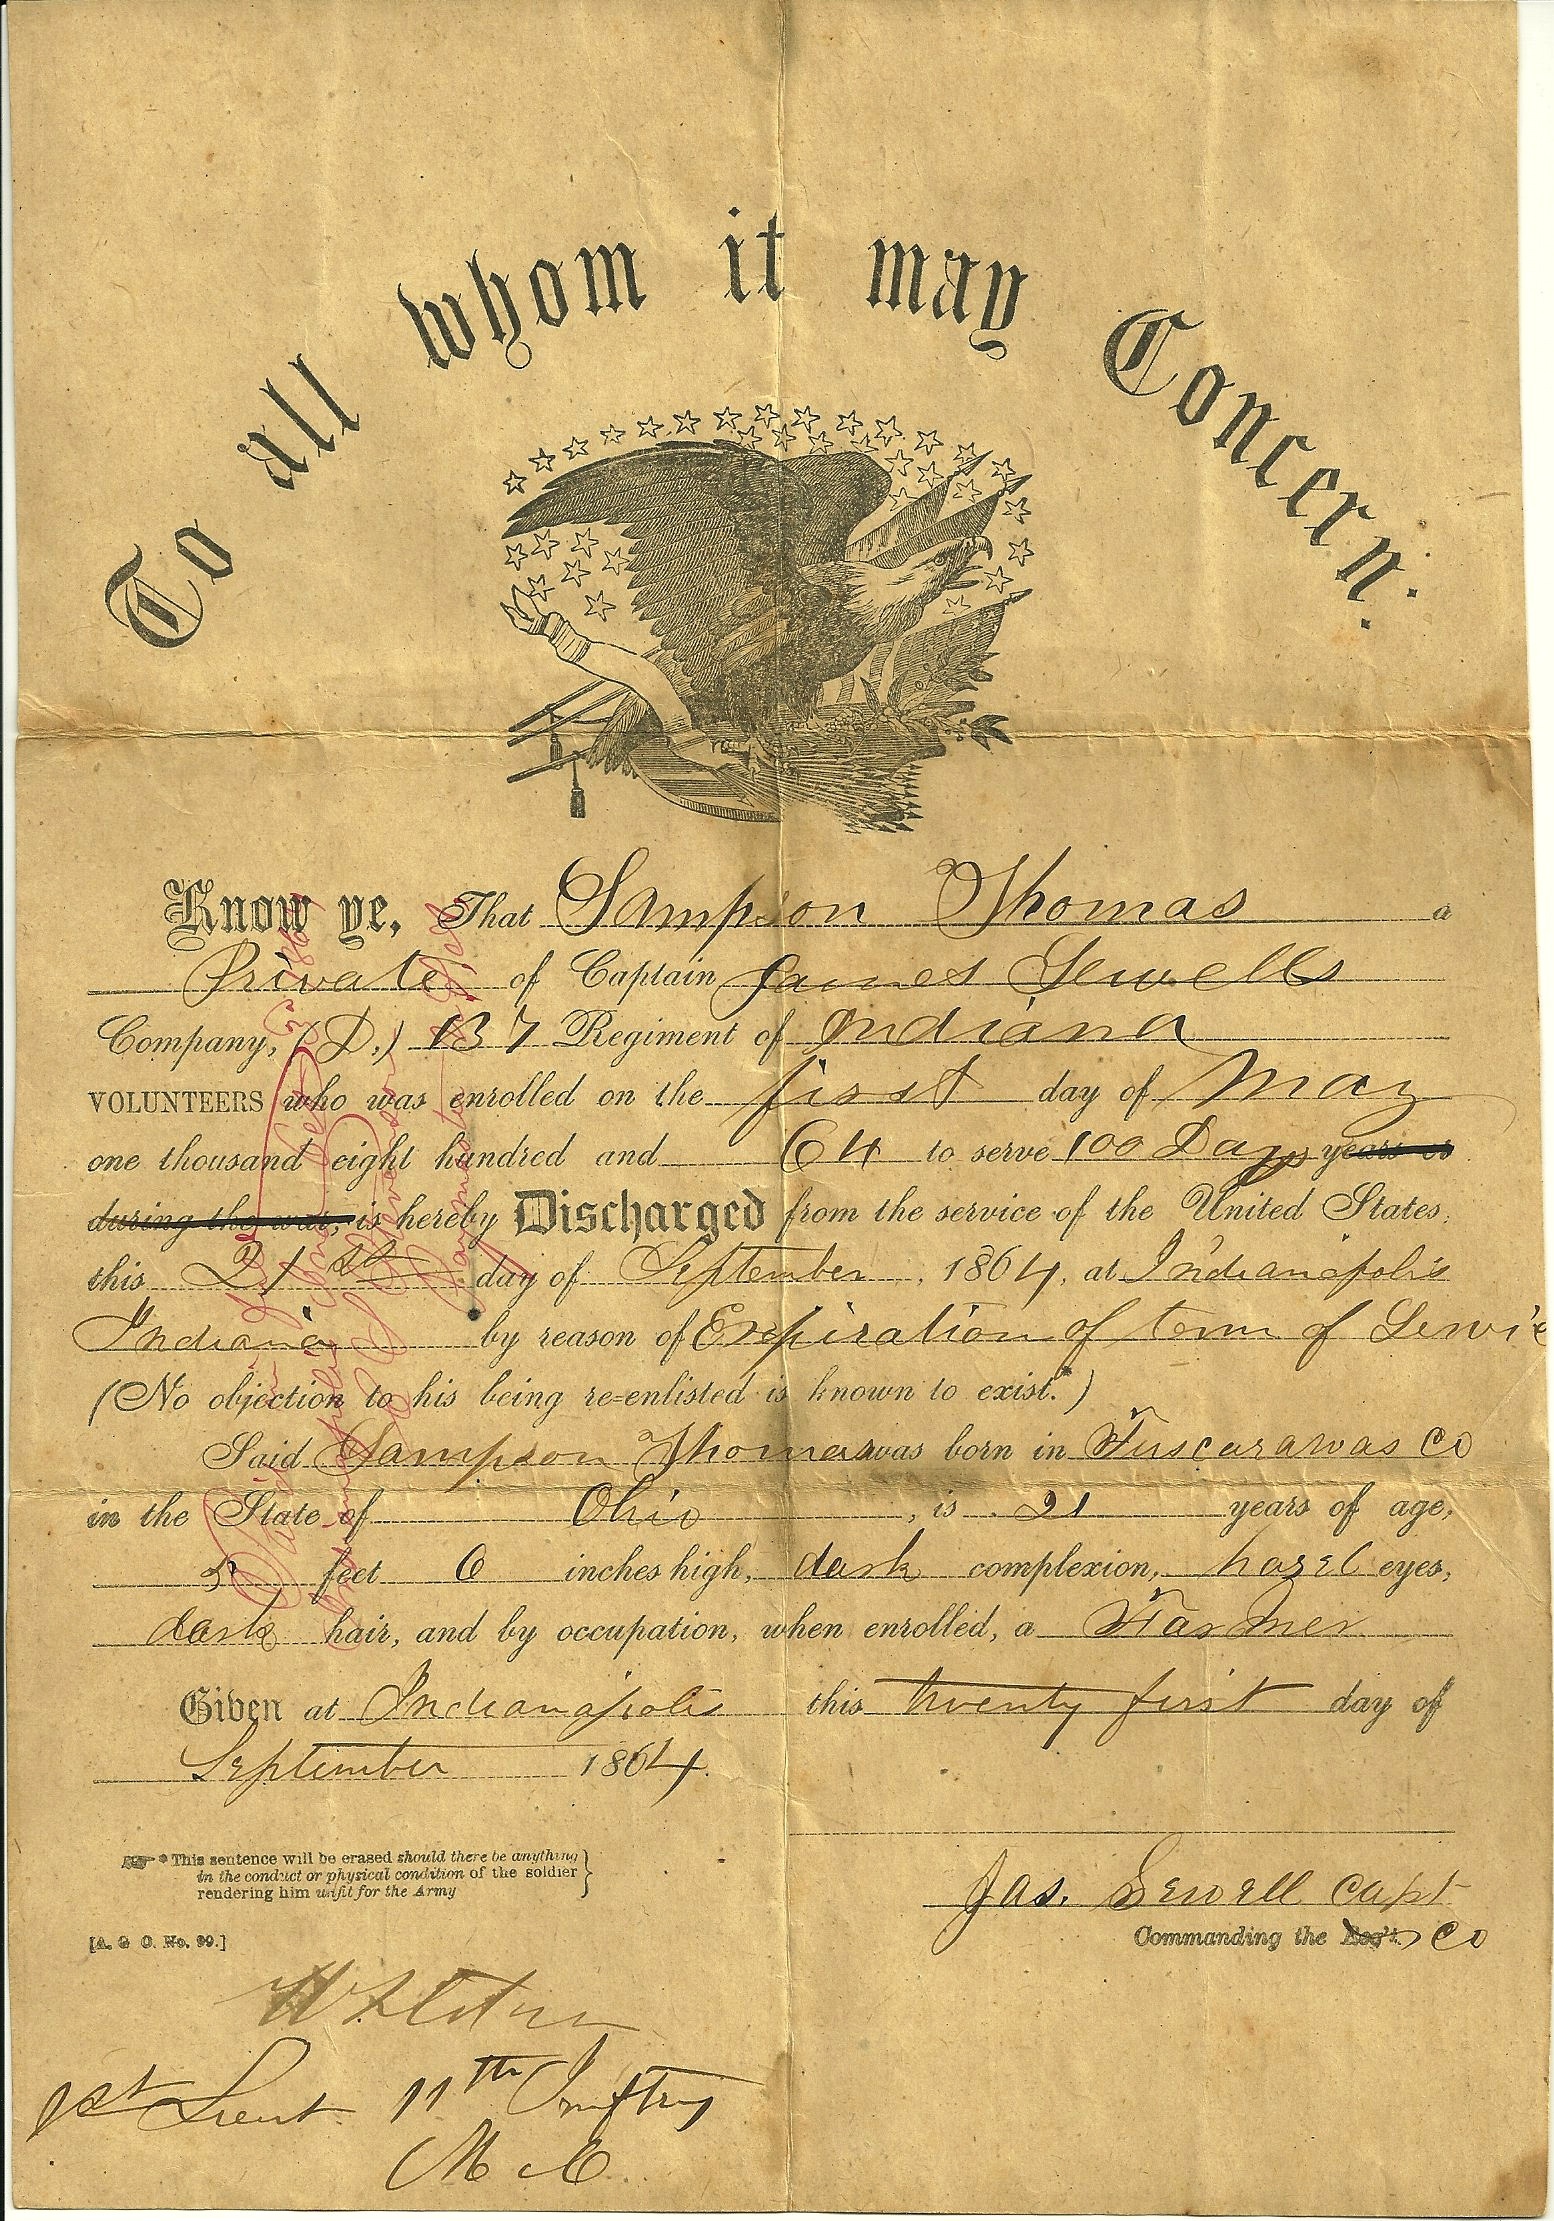 To all whom it may Concern.
Know ye, That Sampson Thomas a
Private of Captain James Sewells
Company, (D.) 137 Regiment of Indiana
VOLUNTEERS who was enrolled on the first day of May
one thousand eight hundred and 64 to serve 100 Days years or
during the war, is hereby Discharged from the service of the United States,
this 21st day of September, 1864, at Indianapolis
Indiana by reason of Expiration of term of Servic
(No objection to his being re-enlisted is known to exist.*)
Said Sampson Thomas was born in Tuscarawas Co
in the State of Ohio, is 21 years of age,
5 feet 6 inches high, dark complexion, hazel eyes,
dark hair, and by occupation, when enrolled, a Farmer
Given at Indianapolis this twenty first day of
September 1864.
* This sentence will be erased should there be anything
in the conduct or physical condition of the soldier
rendering him unfit for the Army
[A. G O. No. 99.]
Jas. Sewell Capt
Commanding the Reg't. Co
1st Lieut 11th Inftry
Paid in full
Indianapolis Ind Sept
Stevenson
Paymaster U.S. Army